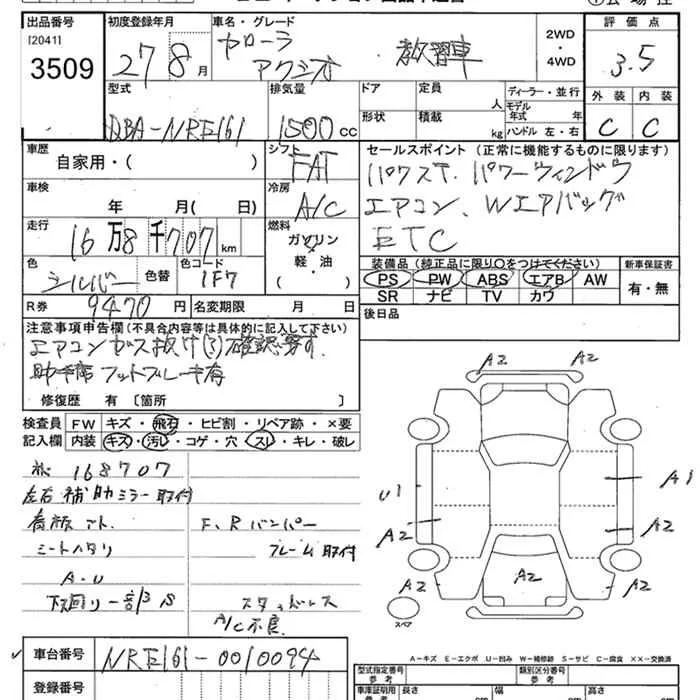 出品番号 初度登録年月 車名・グレード 2WD・4WD 評価点
[2041]
3509 27 8月 カローラ アクシオ 教習車 3.5
型式 排気量 ドア 定員 人 ディーラー・並行 外装 内装
DBA-NRE161 1500cc 形状 積載 kg モデル年式 年式 ハンドル 左・右 C C
車歴 シフト セールスポイント (正常に機能するものに限ります)
自家用・( ) FAT パワステ. パワーウィンドウ
車検 冷房 エアコン、Wエアバッグ
年 月(日) A/C ETC
走行 燃料
16万8千707km ガソリン 軽・油 ( )
色 色替 色コード 装備品(純正品に限り○をつけてください) 新車保証書
シルバー 1F7 PS PW ABS エアB AW 有・無
R券 9470円 名変期限 月 日 SR ナビ TV カワ
注意事項申告欄(不具合内容等は具体的に記入して下さい) 後日品
エアコンガス抜け
助手席フットブレーキ有
修復歴 有 〔箇所 〕
検査員 FW キズ・飛石・ヒビ割・リペア跡・×要
記入欄 内装 キズ・汚レ・コゲ・穴・スレ・キレ・破レ
168707
左右補助ミラー取付
F、Rバンパー
シートヘタリ フレーム取付
A.U
下回り一部 S スタッドレス
A/C不良
車台番号 NRE161-0010094
登録番号
A2 A2
U1 A1
A2 A2
A2 A2 A2
スペア
A-キズ E-エクボ U-凹み W-補修跡 S-サビ C-腐食 ××-交換済
型式指定番号 参考 類別区分番号 参考
車庫証明用 参考 長さ cm 幅 cm 高さ cm